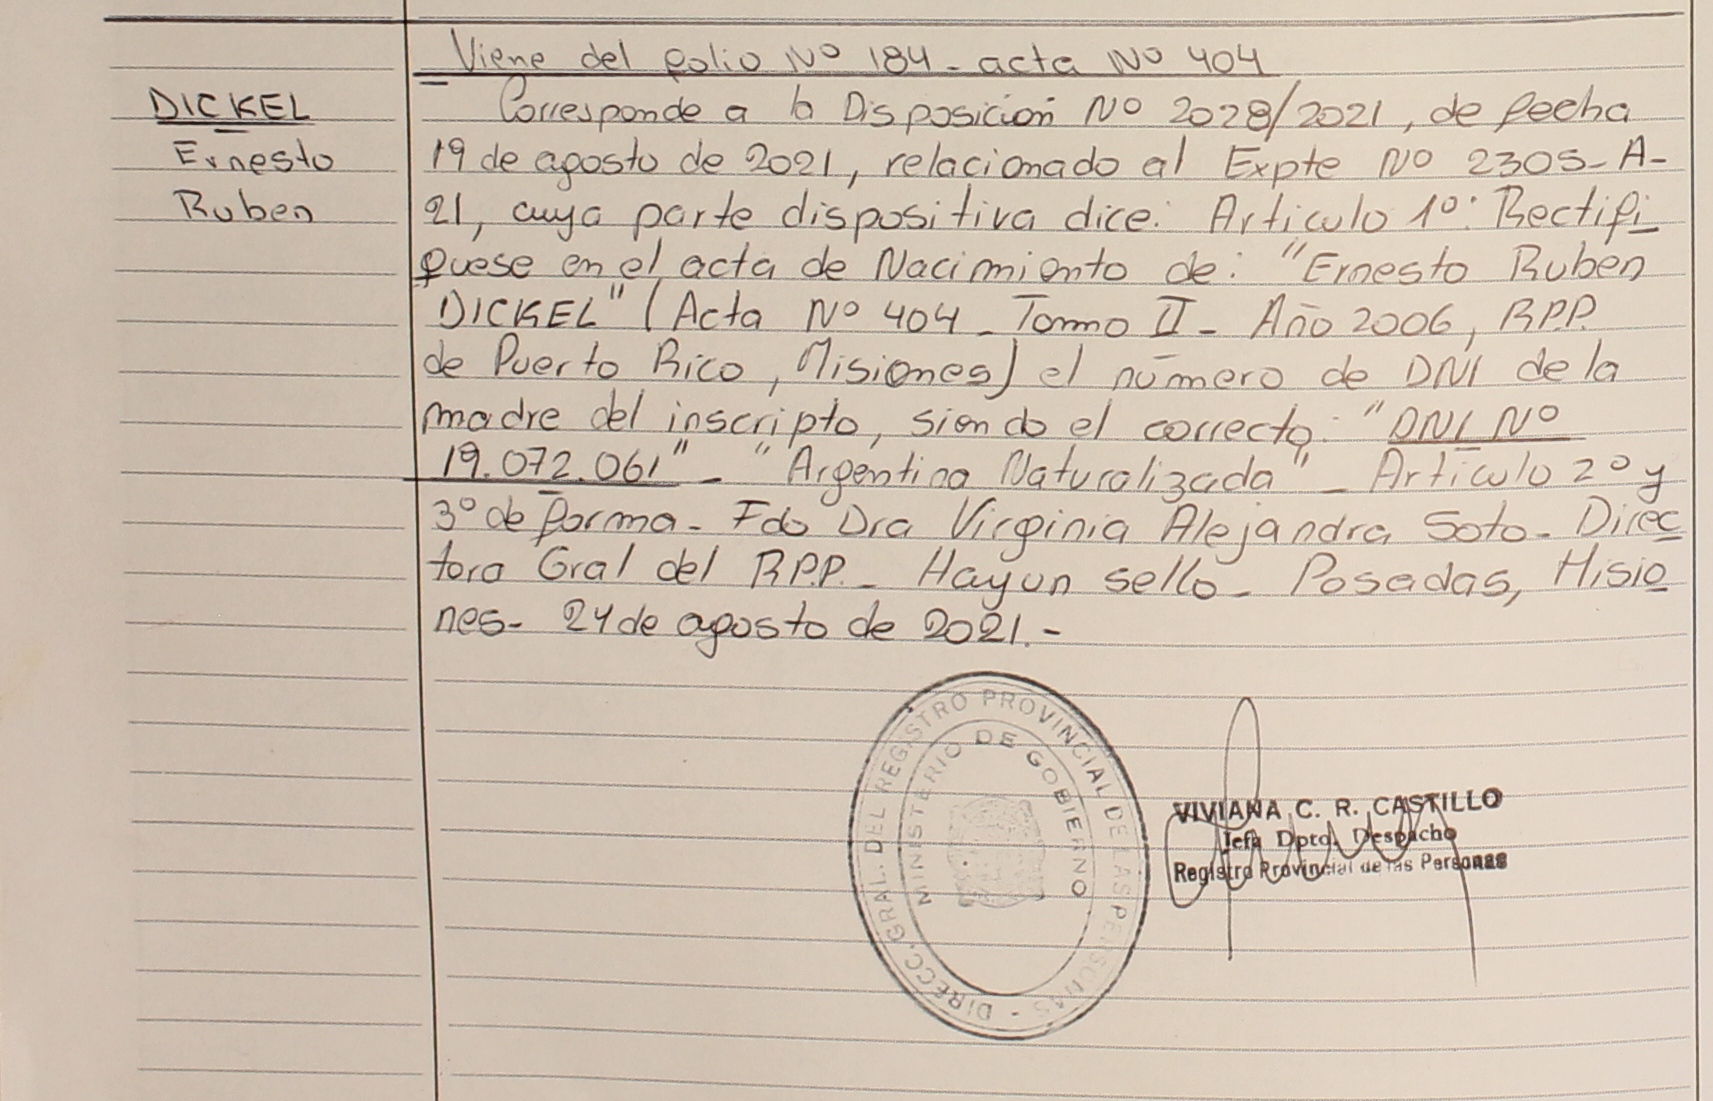 Viene del folio Nº 184 - acta Nº 404
DICKEL
Ernesto
Ruben
Corresponde a la Disposición Nº 2028/2021, de fecha
19 de agosto de 2021, relacionado al Expte Nº 2305-A-
21, cuya parte dispositiva dice: Articulo 1º: Rectifi
quese en el acta de Nacimiento de: "Ernesto Ruben
DICKEL" (Acta Nº 404 - Tomo II - Año 2006, R.P.P.
de Puerto Rico, Misiones) el número de DNI de la
madre del inscripto, siendo el correcto: "DNI Nº
19.072.061" - "Argentina Naturalizada" - Artículo 2º y
3º de forma - Fdo Dra Virginia Alejandra Soto - Direc
tora Gral del R.P.P. - Hay un sello - Posadas, Misio
nes - 24 de agosto de 2021.-
DIRECC. GRAL. DEL REGISTRO PROVINCIAL DE LAS PERSONAS -
MINISTERIO DE GOBIERNO
VIVIANA C. R. CASTILLO
Jefa Dpto. Despacho
Registro Provincial de las Personas